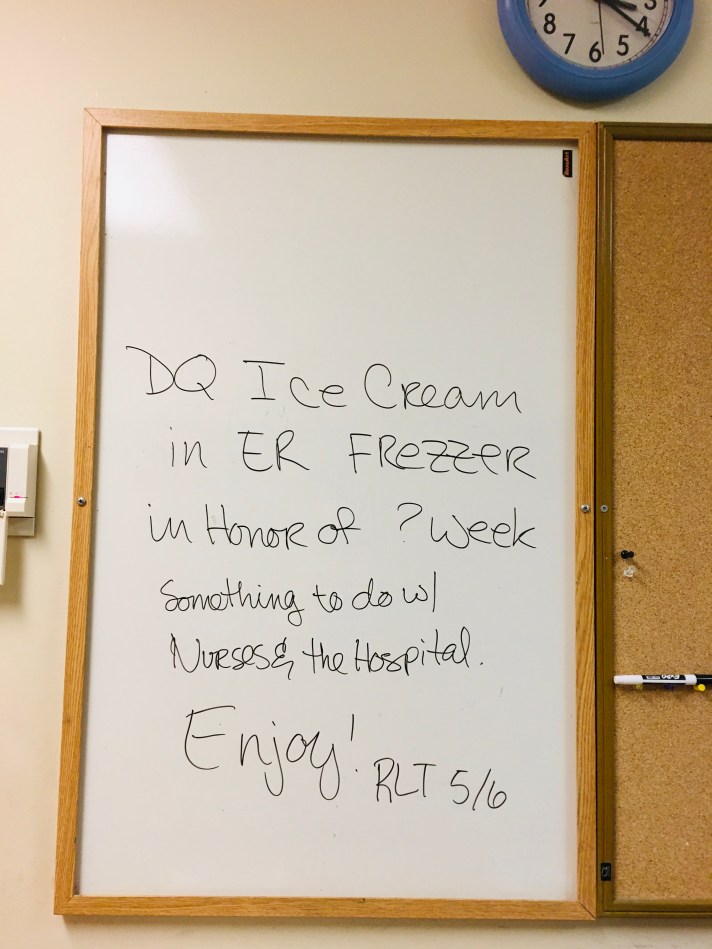 8 7 6 5 4 3
DQ Ice Cream
in ER FREZZER
in Honor of ? Week
Something to do w/
Nurses & the Hospital.
Enjoy!
RLT 5/6
EXPO